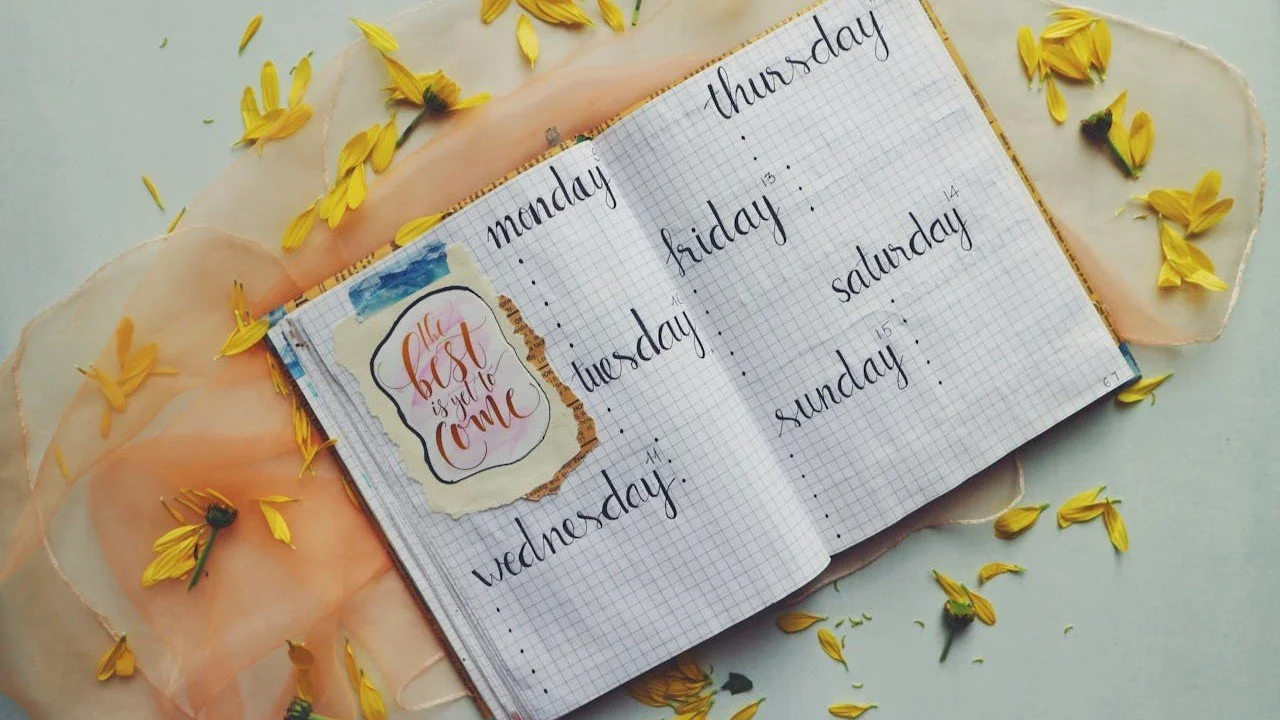 monday
the
best
is yet to
come
tuesday
wednesday 11
thursday
friday 13
saturday 14
sunday 15
67